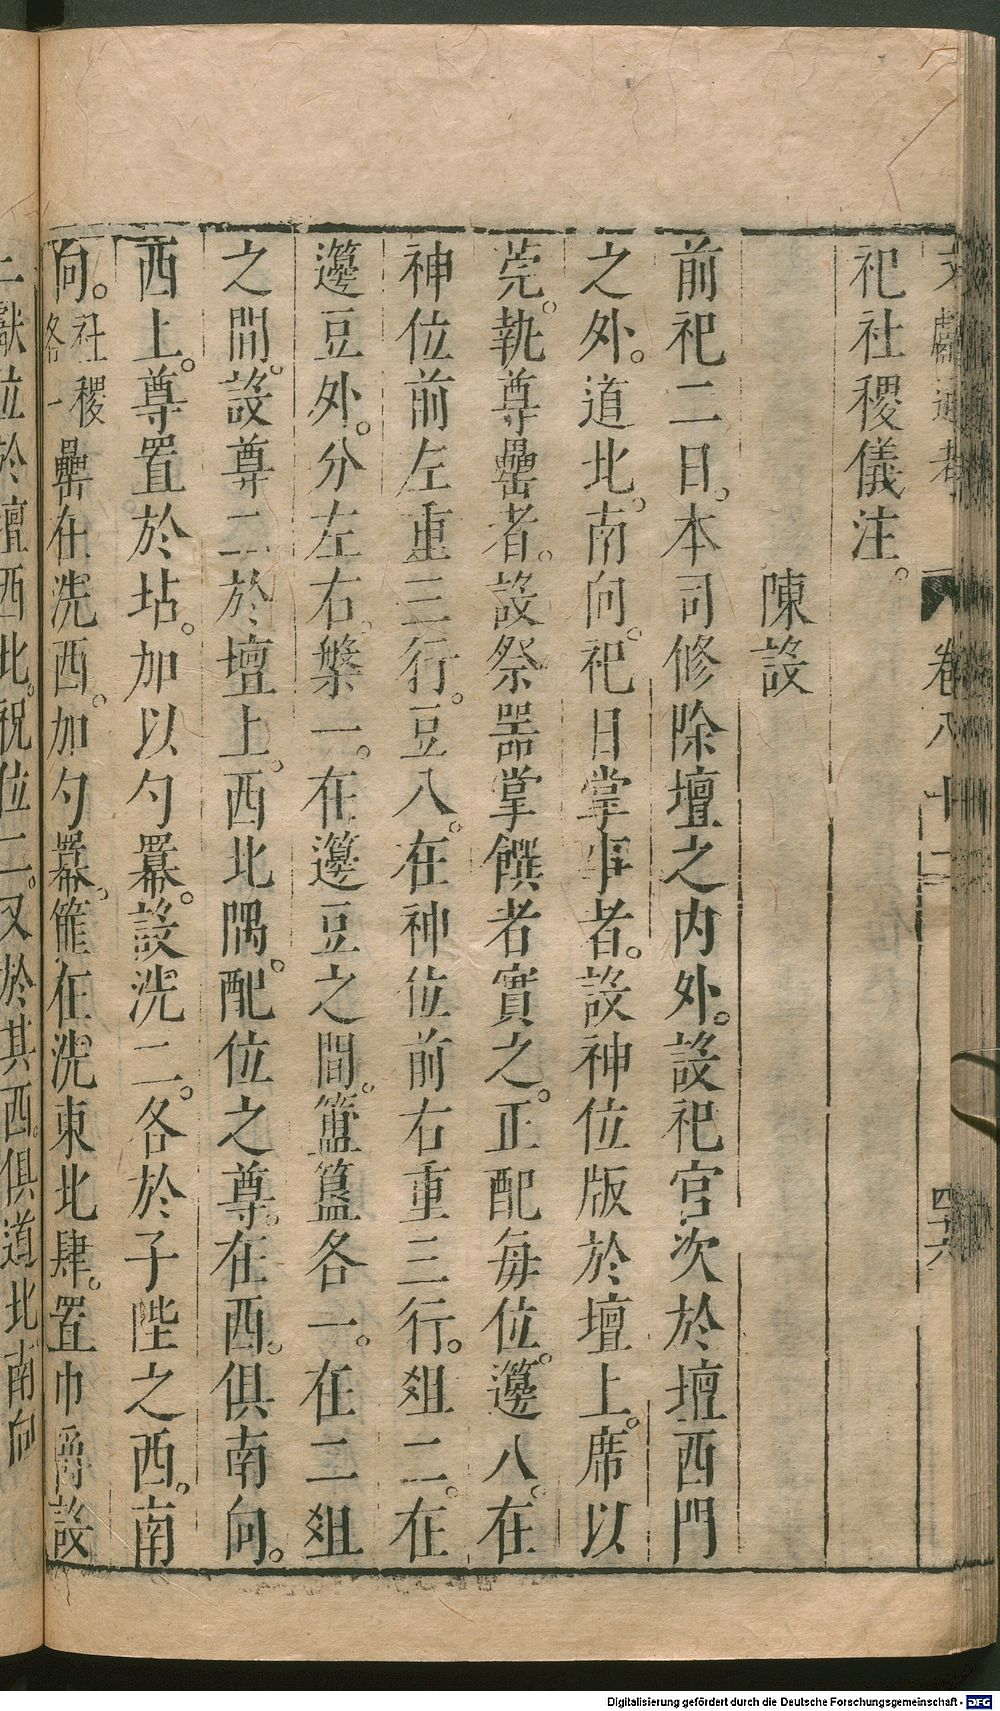 文獻通考 卷八十二 四六
祀社稷儀注。
陳設
前祀二日。本司修除壇之內外。設祀官次於壇西門
之外。道北。南向。祀日掌事者。設神位版於壇上。席以
莞。執尊罍者。設祭器掌饌者實之。正配每位。籩八。在
神位前左重三行。豆八。在神位前右重三行。俎二。在
籩豆外。分左右。槃一。在籩豆之間。簠簋各一。在二俎
之間。設尊二於壇上。西北隅。配位之尊。在西。俱南向。
西上。尊置於坫。加以勺羃。設洗二。各於子陛之西。南
向。社稷各一罍在洗西。加勺羃。篚在洗東北肆。置巾爵設
二獻位於壇西北。祝位二。又於其西。俱道北南向
Digitalisierung gefördert durch die Deutsche Forschungsgemeinschaft - DFG